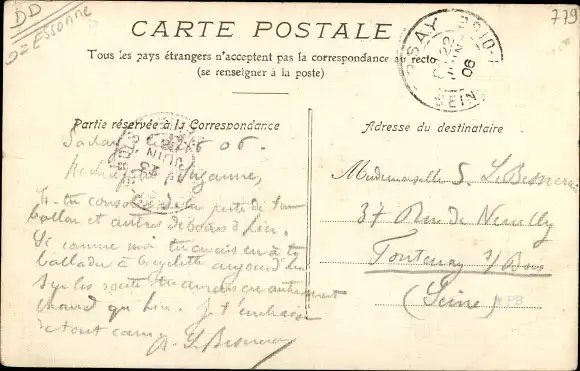 DD
92 Essonne
779
CARTE POSTALE
Tous les pays étrangers n'acceptent pas la correspondance au recto
(se renseigner à la poste)
ORSAY
22
JUIN
06
Partie réservée à la Correspondance
Suzanne,
la perte de ton
ballon et autres d'hier.
Si comme moi tu avais eu à te
ballader à bicyclette aujourd'hui
sur les routes tu aurais eu autrement
chaud qu'hier. Je t'embrasse
de tout cœur
Adresse du destinataire
Mademoiselle S. Le Besnerais
37 Rue de Neuilly
Fontenay s/ Bois
(Seine)